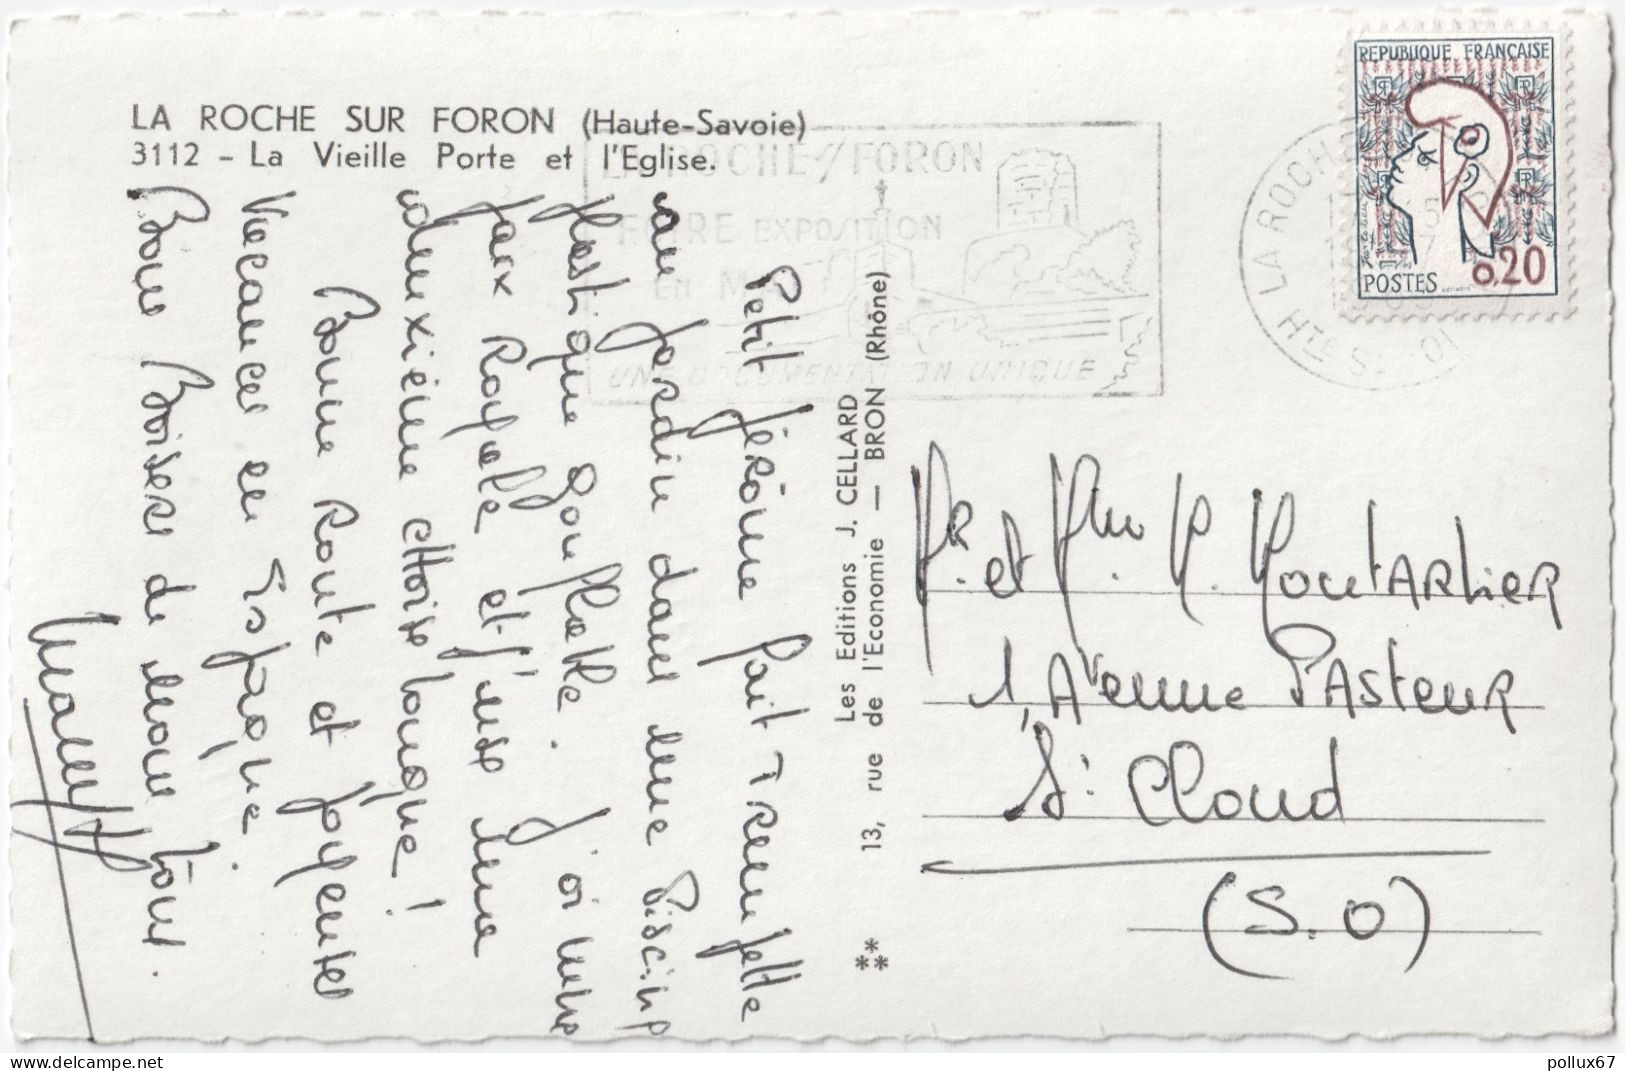 LA ROCHE SUR FORON (Haute-Savoie)
3112 - La Vieille Porte et l'Eglise.
LA ROCHE s/ FORON
FOIRE EXPOSITION
EN MAI
UNE DOCUMENTATION UNIQUE
LA ROCHE
HTE S OI
REPUBLIQUE FRANÇAISE
0,20
POSTES
Petit Jérôme fait Trempette
au Jardin dans une Piscine
Plastique Gonflable. J'ai une
Faux Rayelle et j'use une
deuxième chaise longue!
Bonne Route et joyeuses
Vacances en Espagne.
Bons Baisers de nous tous.
Les Editions J. CELLARD
13, rue de l'Economie — BRON (Rhône)
Mr. et Mme M. MoutARlier
1, Avenue PAsteuR
St Cloud
(S.O)
delcampe.net
pollux67